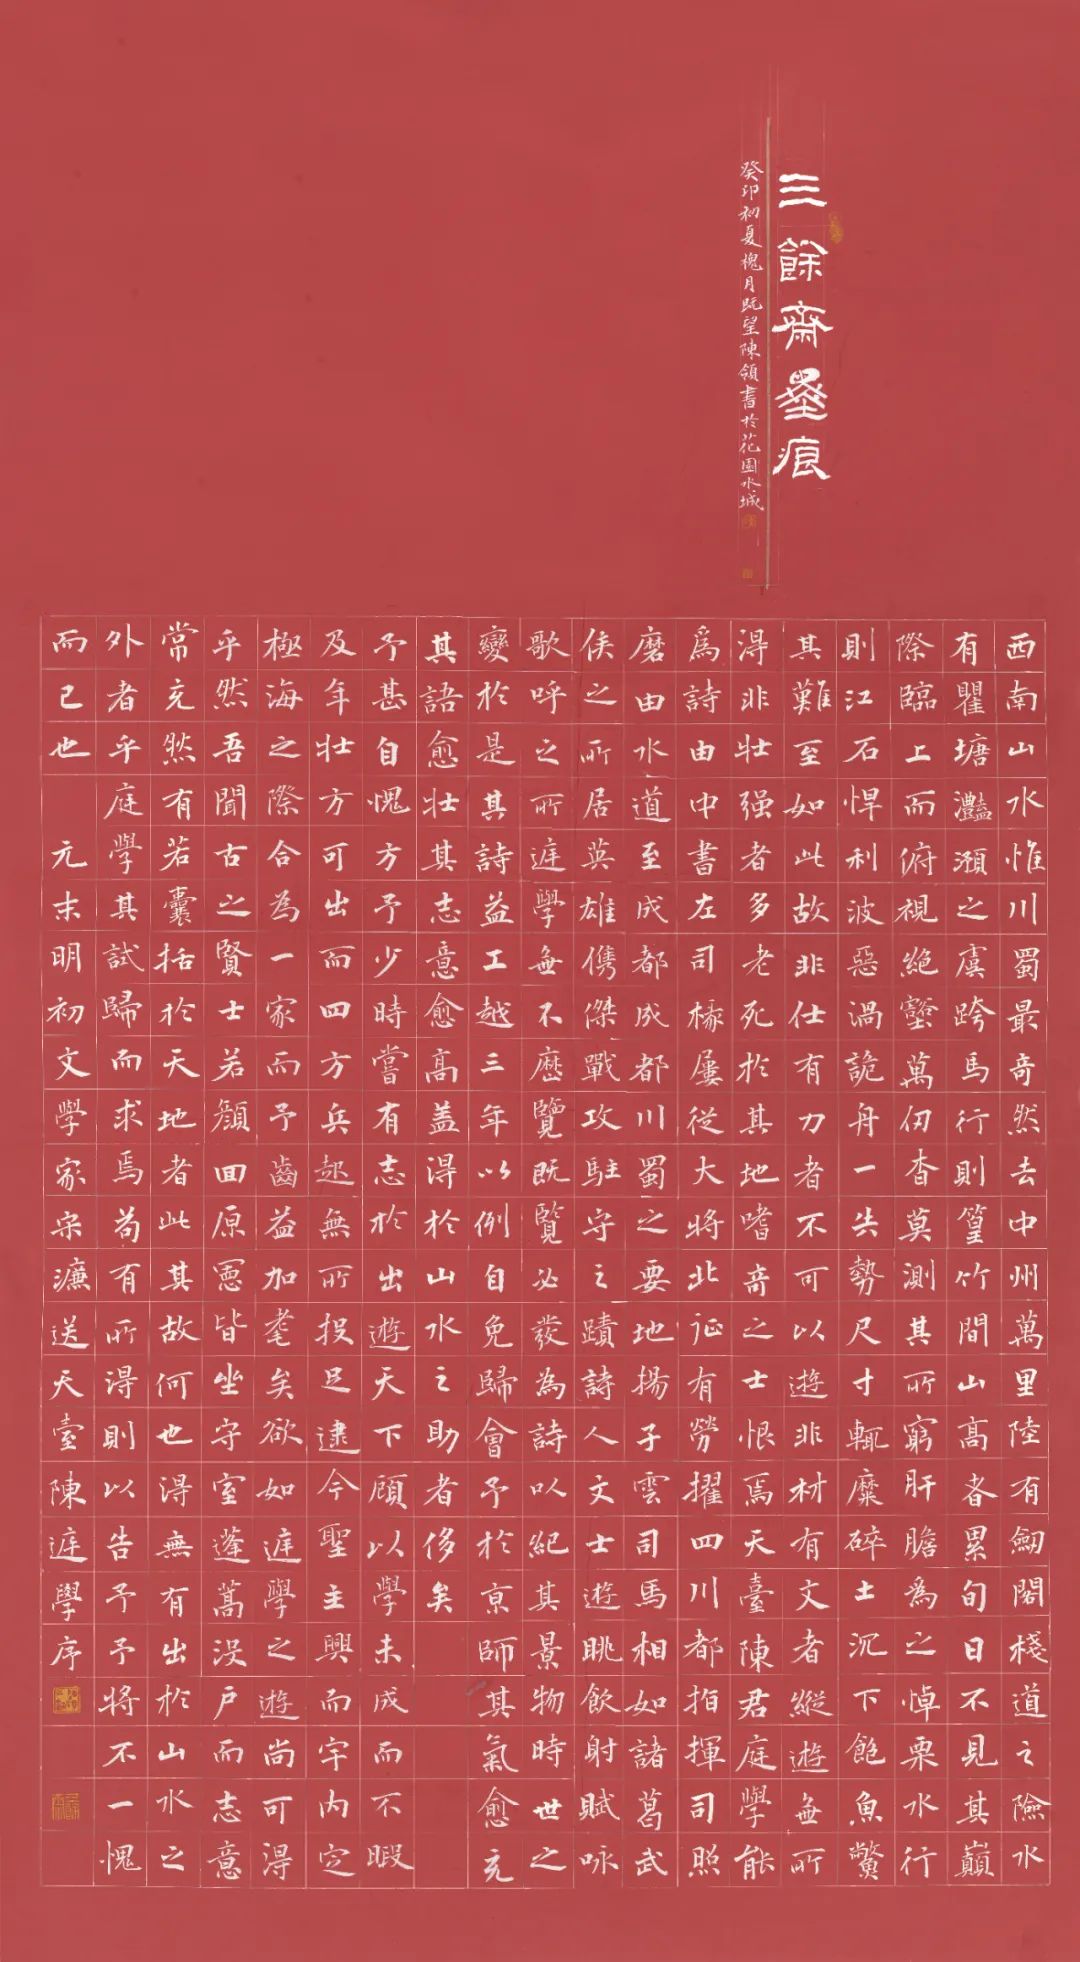 三餘齋墨痕
癸卯初夏槐月既望陳領書於花園水城
西南山水惟川蜀最奇然去中州萬里陸有劒閣棧道之險水
有瞿塘灩澦之虞跨馬行則篁竹間山高者累旬日不見其巔
際臨上而俯視絕壑萬仞杳莫測其所窮肝膽為之悼栗水行
則江石悍利波惡渦詭舟一失勢尺寸輒糜碎土沉下飽魚鱉
其難至如此故非仕有力者不可以遊非材有文者縱遊無所
得非壯强者多老死於其地嗜奇之士恨焉天臺陳君庭學能
爲詩由中書左司掾屢從大將北征有勞擢四川都指揮司照
磨由水道至成都成都川蜀之要地揚子雲司馬相如諸葛武
侯之所居英雄儁傑戰攻駐守之蹟詩人文士遊眺飲射賦咏
歌呼之所庭學無不歷覽既覽必發為詩以紀其景物時世之
變於是其詩益工越三年以例自免歸會予於京師其氣愈充
其語愈壯其志意愈高蓋得於山水之助者侈矣
予甚自愧方予少時嘗有志於出遊天下顧以學未成而不暇
及年壯方可出而四方兵起無所投足逮今聖主興而宇内定
極海之際合為一家而予齒益加耄矣欲如庭學之遊尚可得
乎然吾聞古之賢士若顏回原憲皆坐守室蓬蒿沒戶而志意
常充然有若囊括於天地者此其故何也得無有出於山水之
外者乎庭學其試歸而求焉苟有所得則以告予予將不一愧
而已也 元末明初文學家宋濂送天臺陳庭學序